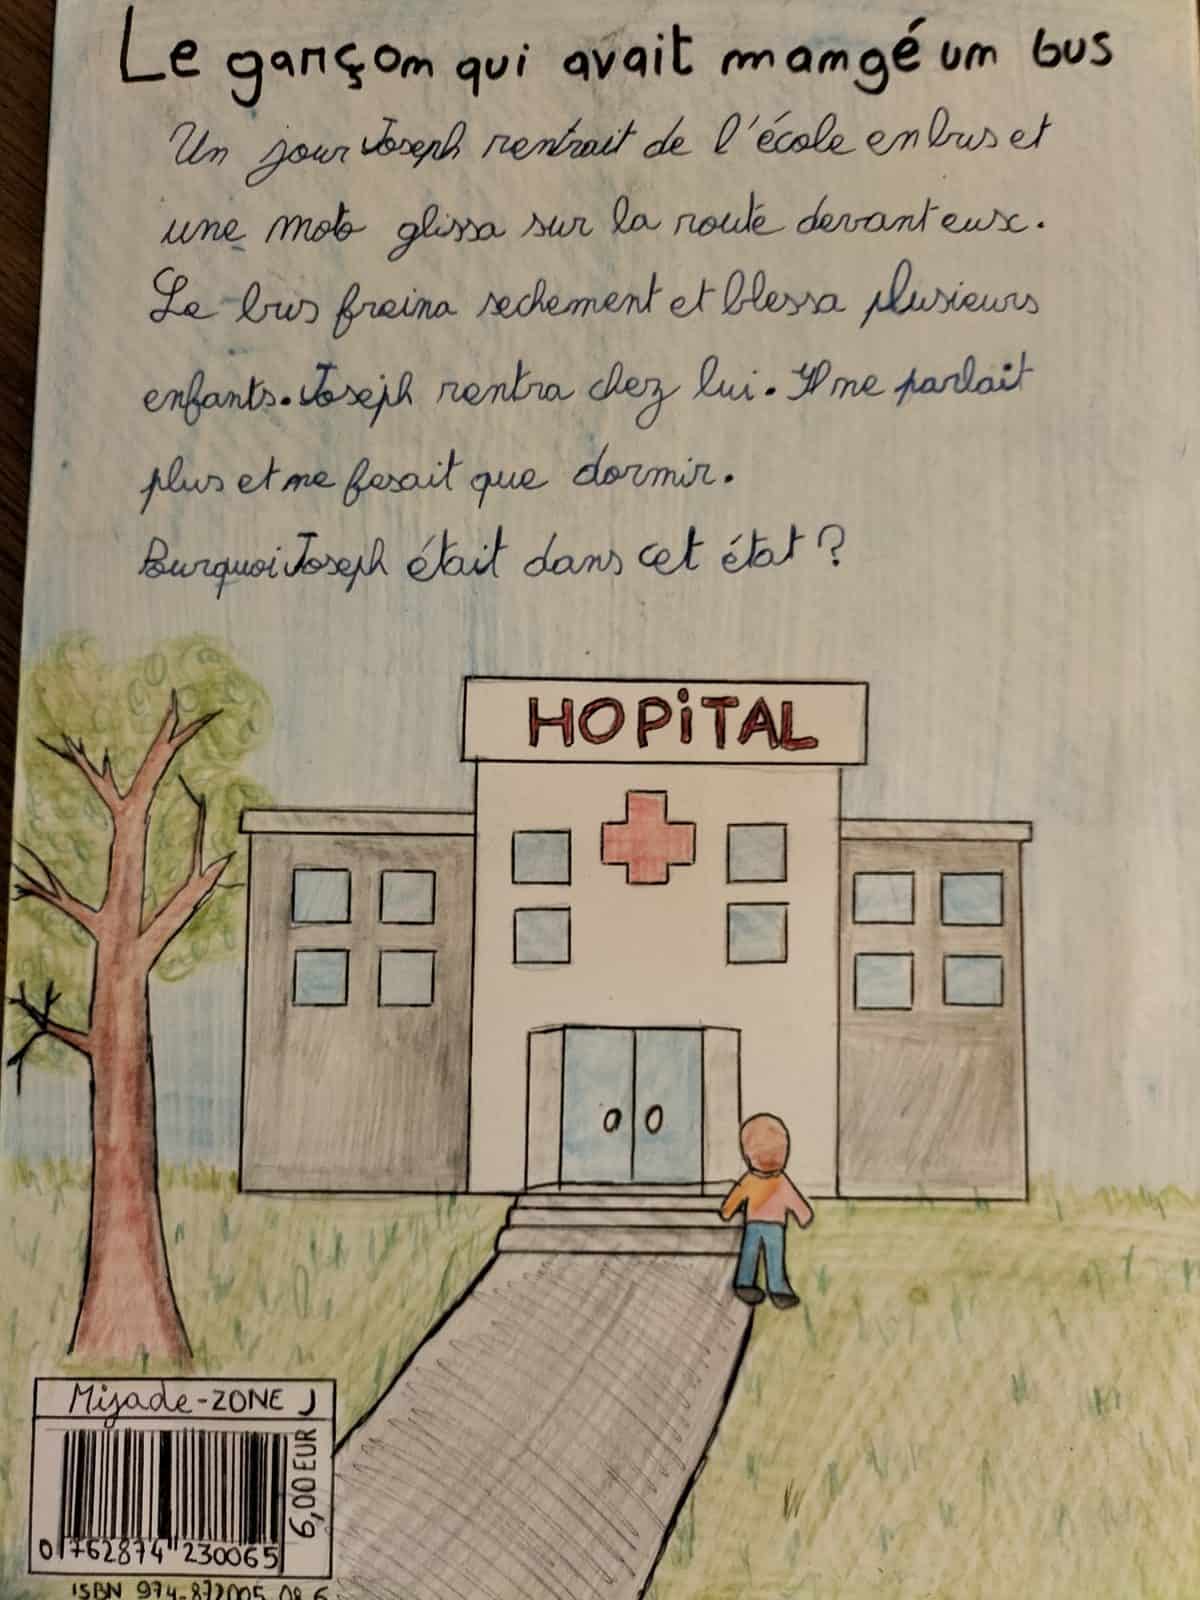 Le garçon qui avait mangé un bus
Un jour Joseph rentrait de l'école en bus et
une moto glissa sur la route devant eux.
Le bus freina sechement et blessa plusieurs
enfants. Joseph rentra chez lui. Il ne parlait
plus et ne fesait que dormir.
Pourquoi Joseph était dans cet état ?
HOPiTAL
Mijade-ZONE J
6,00 EUR
0 762874 230065
ISBN